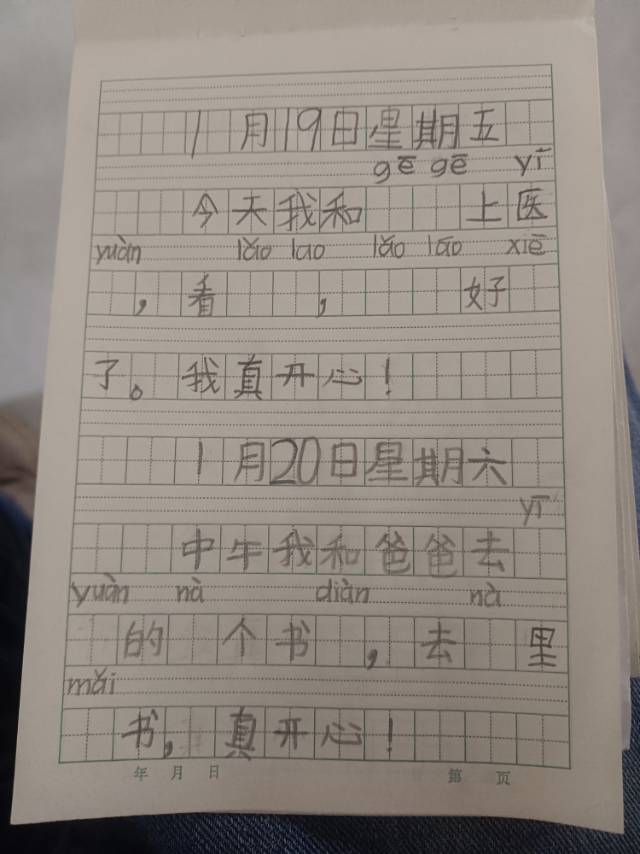 1月19日星期五
gē gē yī
今天我和 上医
yuàn lǎo lao lǎo lāo xiē
，看 ， 好
了。我真开心！
1月20日星期六
yī
中午我和爸爸去
yuàn nà diàn nà
的 个书 ，去 里
mǎi
书，真开心！
年 月 日 第 页